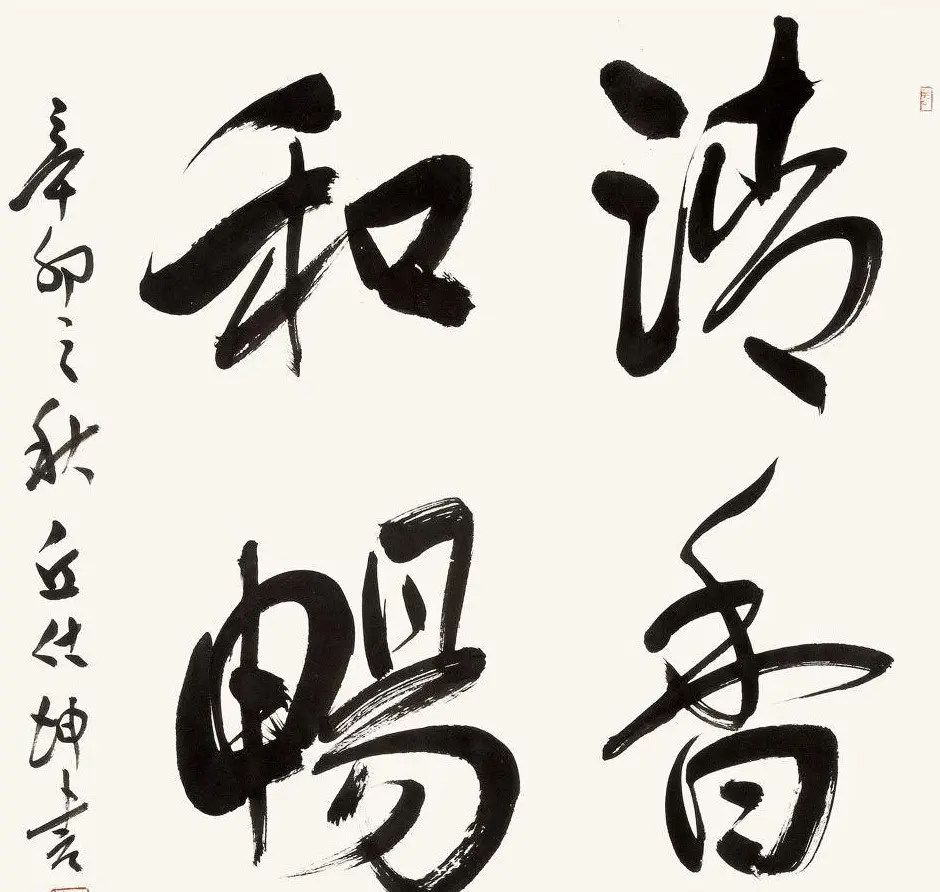 清香
和暢
辛卯之秋丘仕坤書